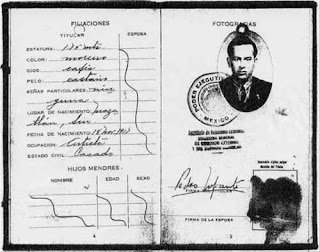 FILIACIONES
TITULAR ESPOSA
ESTATURA:
COLOR: moreno
OJOS: cafés
PELO: castaño
SEÑAS PARTICULARES: nin
guna
LUGAR DE NACIMIENTO:
tlán, Sin
FECHA DE NACIMIENTO: 18 nov 1917
OCUPACION: Artista
ESTADO CIVIL: Casado
HIJOS MENORES
NOMBRE EDAD SEXO
4
FOTOGRAFIAS
PODER EJECUTIVO
MEXICO
Pedro Infante
FIRMA DEL TITULAR
FIRMA DE LA ESPOSA
5